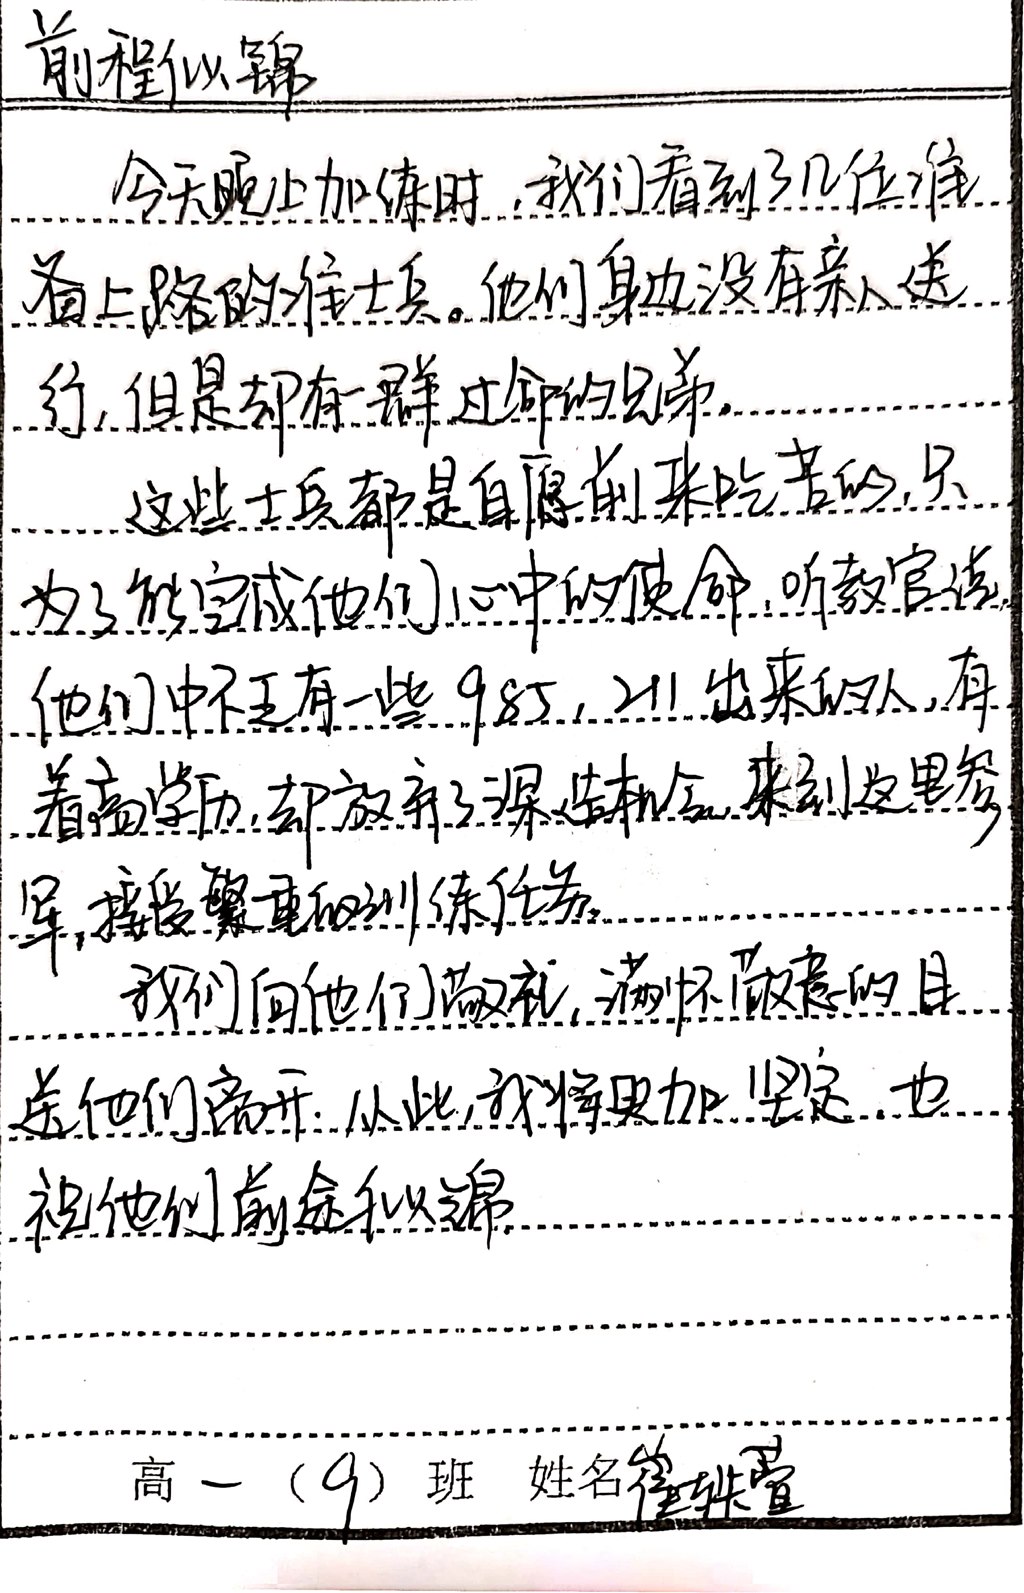 前程似锦
今天晚上加练时，我们看到了几位准
备上路的准士兵。他们身边没有亲人送
行，但是却有一群过命的兄弟。
这些士兵都是自愿前来吃苦的，只
为了能完成他们心中的使命，听教官说，
他们中不乏有一些985，211出来的人，有
着高学历，却放弃了深造机会，来到这里参
军，接受繁重的训练任务。
我们向他们敬礼，满怀敬意的目
送他们离开。从此，我将更加坚定，也
祝他们前途似锦。
高一（9）班 姓名崔轶萱